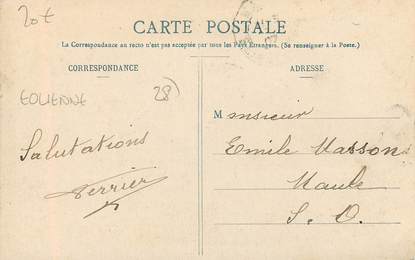 20€
CARTE POSTALE
La Correspondance au recto n'est pas acceptée par tous les Pays Étrangers. (Se renseigner à la Poste.)
CORRESPONDANCE
ADRESSE
EOLIENNE
28)
Salutations
Verrier
Monsieur
Emile Massons
Maule
S. O.